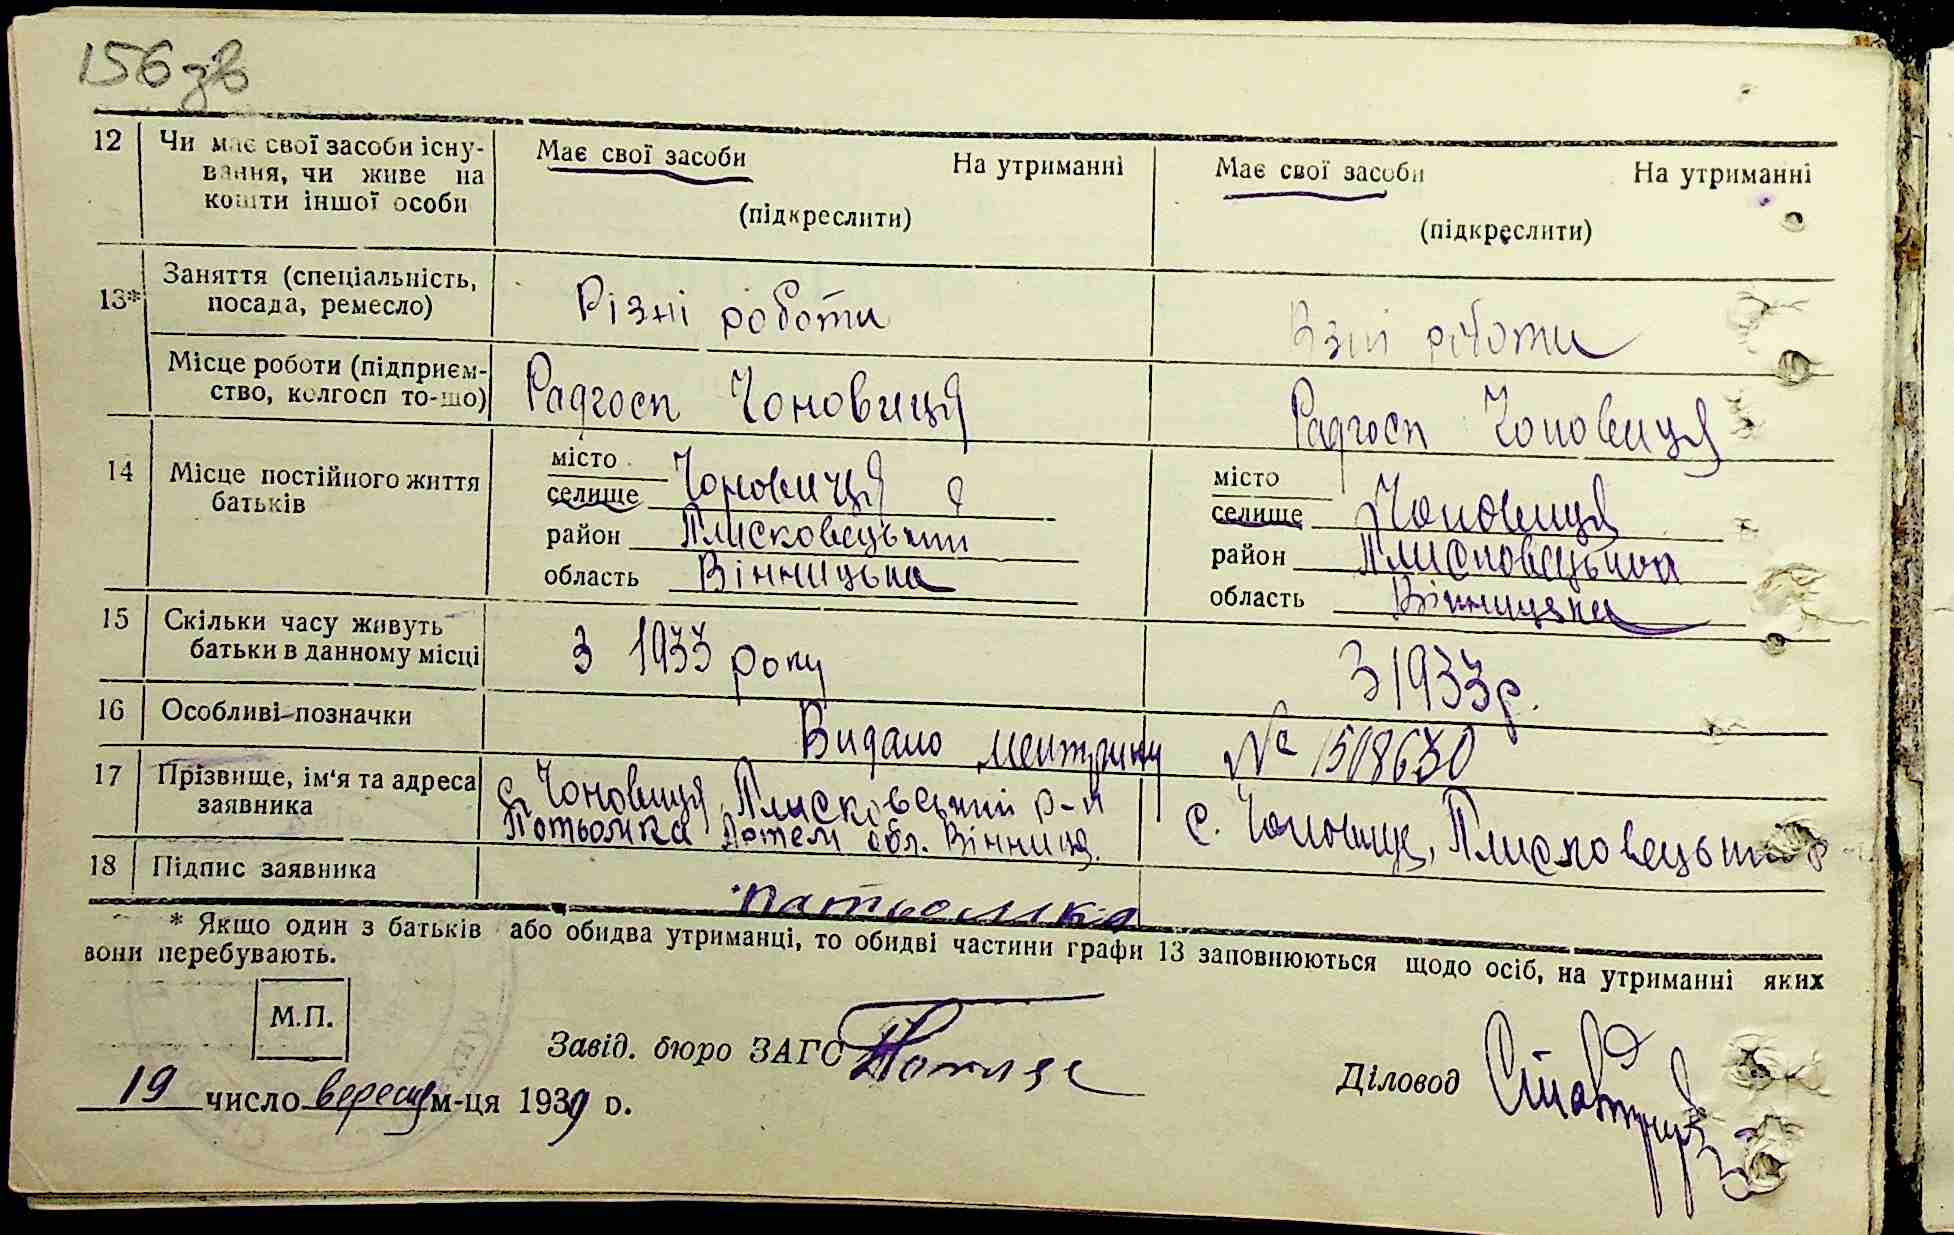 156 зв
12 Чи має свої засоби існу-
вання, чи живе на
кошти іншої особи
Має свої засоби На утриманні
(підкреслити)
Має свої засоби На утриманні
(підкреслити)
13* Заняття (спеціальність,
посада, ремесло)
Різні роботи
роботи
Місце роботи (підприєм-
ство, колгосп то-що)
Радгосп Чоновиця
Радгосп Чоновиця
14 Місце постійного життя
батьків
місто
селище Чоновиця
район Плисковецький
область Вінницька
місто
селище Чоновиця
район Плисковецький
область Вінницька
15 Скільки часу живуть
батьки в данному місці
З 1933 року
З 1933 р.
16 Особливі позначки
Видано метрику № 1508630
17 Прізвище, ім'я та адреса
заявника
с. Чоновиця, Плисковський р-н
Потьомка обл. Вінниця.
с. Плисковецький
18 Підпис заявника
Патьомка
* Якщо один з батьків або обидва утриманці, то обидві частини графи 13 заповнюються щодо осіб, на утриманні яких
вони перебувають.
М.П.
Завід. бюро ЗАГС
Діловод
19 число вересня м-ця 1939 р.